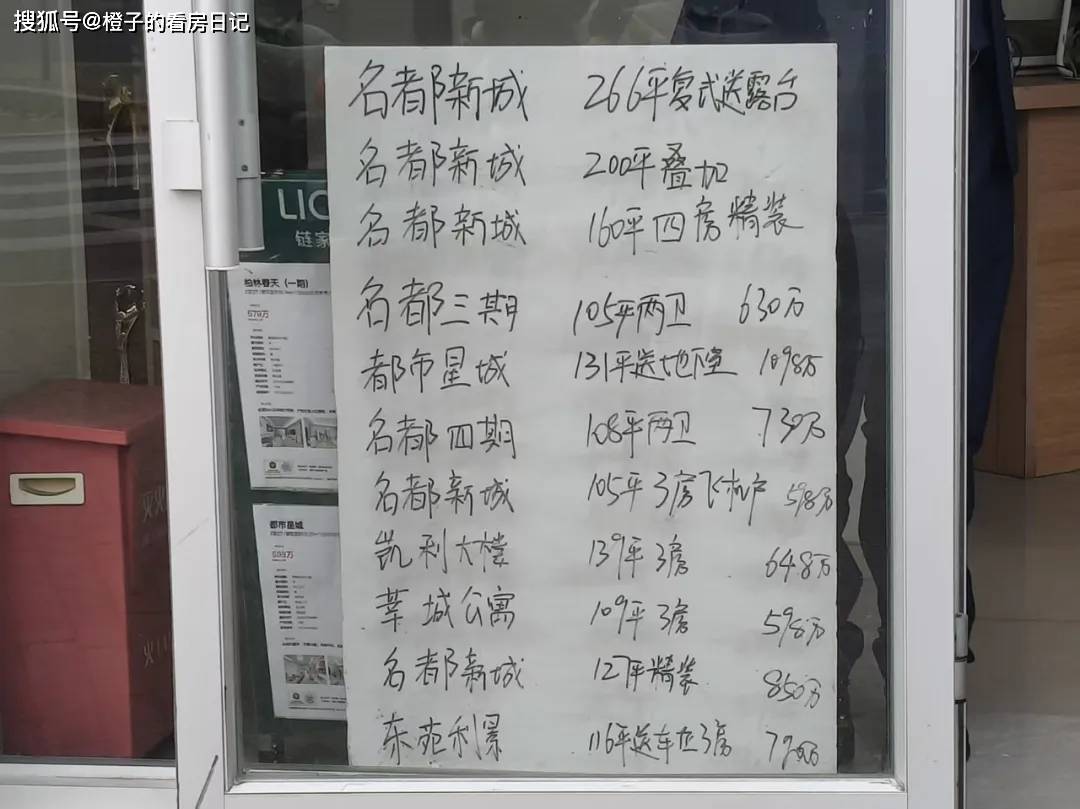 搜狐号@橙子的看房日记
名都新城 266平复式送露台
名都新城 200平叠加
名都新城 160平四房精装
名都三期 105平两卫 630万
都市星城 131平送地下室 1098万
名都四期 108平两卫 730万
名都新城 105平3房飞机户 598万
凯利大楼 139平3房 648万
莘城公寓 109平3房 598万
名都新城 127平精装 850万
东苑利景 116平送车位3房
LIC
链家
柏林春天（一期）
579万
都市星城
598万
灭火
火